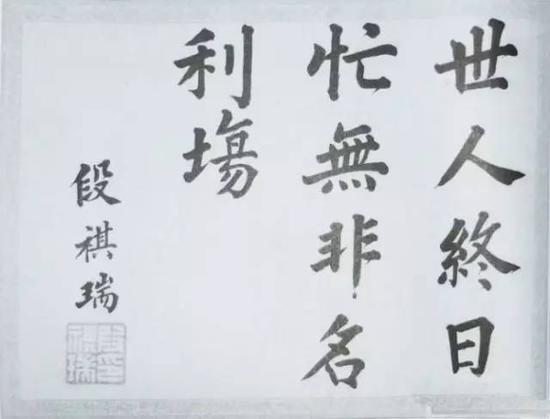 世人終日
忙無非名
利場
段祺瑞